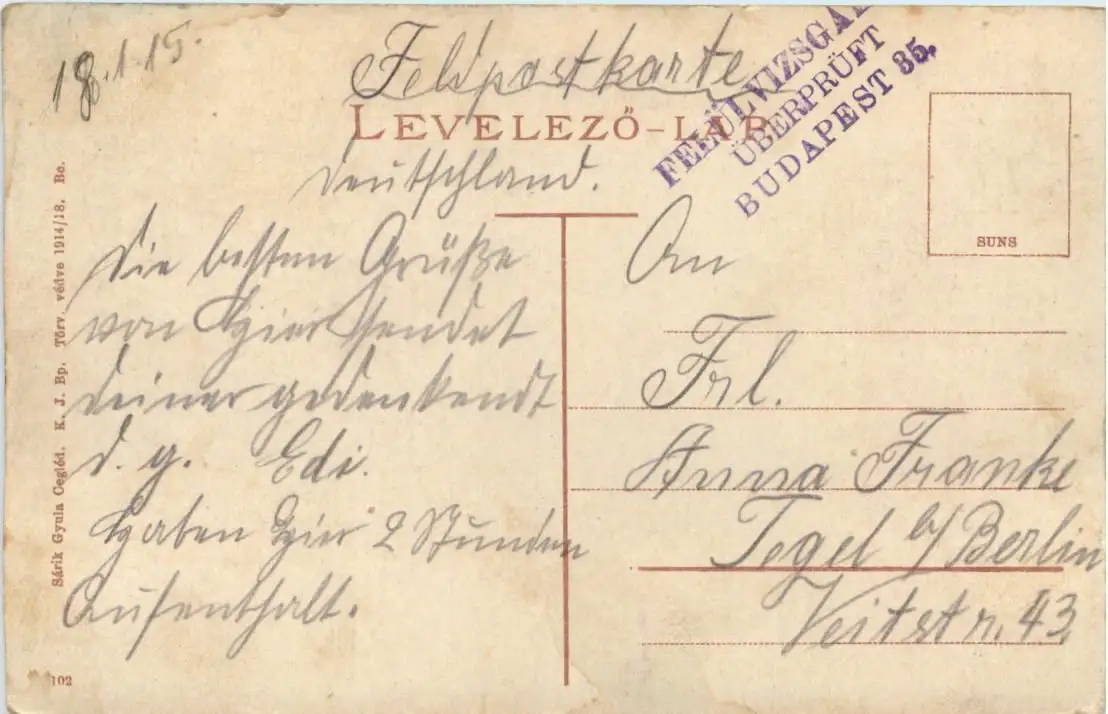 18.1.15.
Feldpostkarte
LEVELEZŐ-LAP
Deutschland.
FELÜLVIZSGÁL
ÜBERPRÜFT
BUDAPEST 35.
SUNS
Die besten Grüße
von hier sendet
deiner gedenkendt
d. g. Edi.
Haben hier 2 Stunden
Aufenthalt.
An
Frl.
Anna Franke
Tegel b/Berlin
Veitstr. 43.
Sárik Gyula Cegléd. K. J. Bp. Törv. védve 1914/18. Be.
102